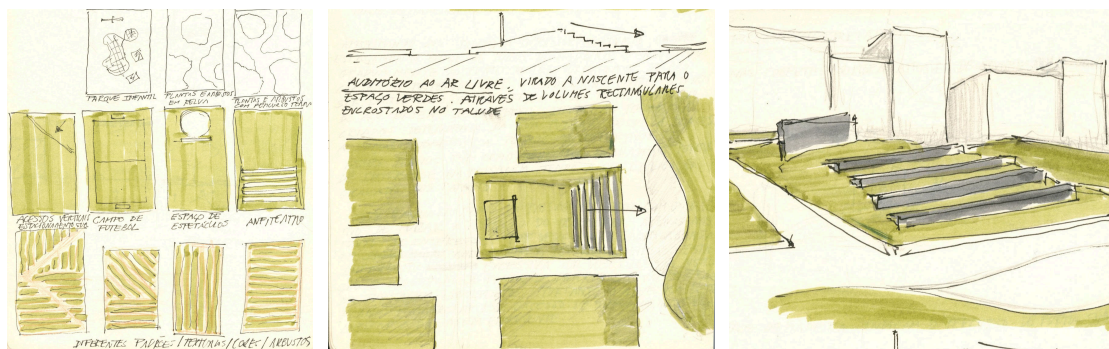 PARQUE INFANTIL
PLANTAS E ARBUSTOS
EM RELVA
PLANTAS E ARBUSTOS
COM PERCURSO TERRA
ACESSOS VERTICAIS
ESTACIONAMENTO
CAMPO DE
FUTEBOL
ESPAÇO DE
ESPETÁCULOS
ANFITEATRO
DIFERENTES PADRÕES / TEXTURAS / CORES / ARBUSTOS
AUDITÓRIO AO AR LIVRE, VIRADO A NASCENTE PARA O
ESPAÇO VERDES. ATRAVÉS DE VOLUMES RECTANGULARES
ENCROSTADOS NO TALUDE